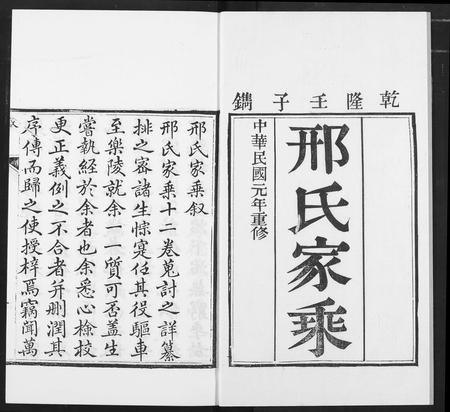 乾隆壬子鐫
邢氏家乘
中華民國元年重修
邢氏家乘叙
邢氏家乘十二卷蒐討之詳纂
排之密諸生惊寔任其役驅車
至樂陵就余一一質可否蓋生
嘗執經於余者也余悉心檢校
更正義例之不合者并刪潤其
序傳而歸之使授梓焉竊聞萬